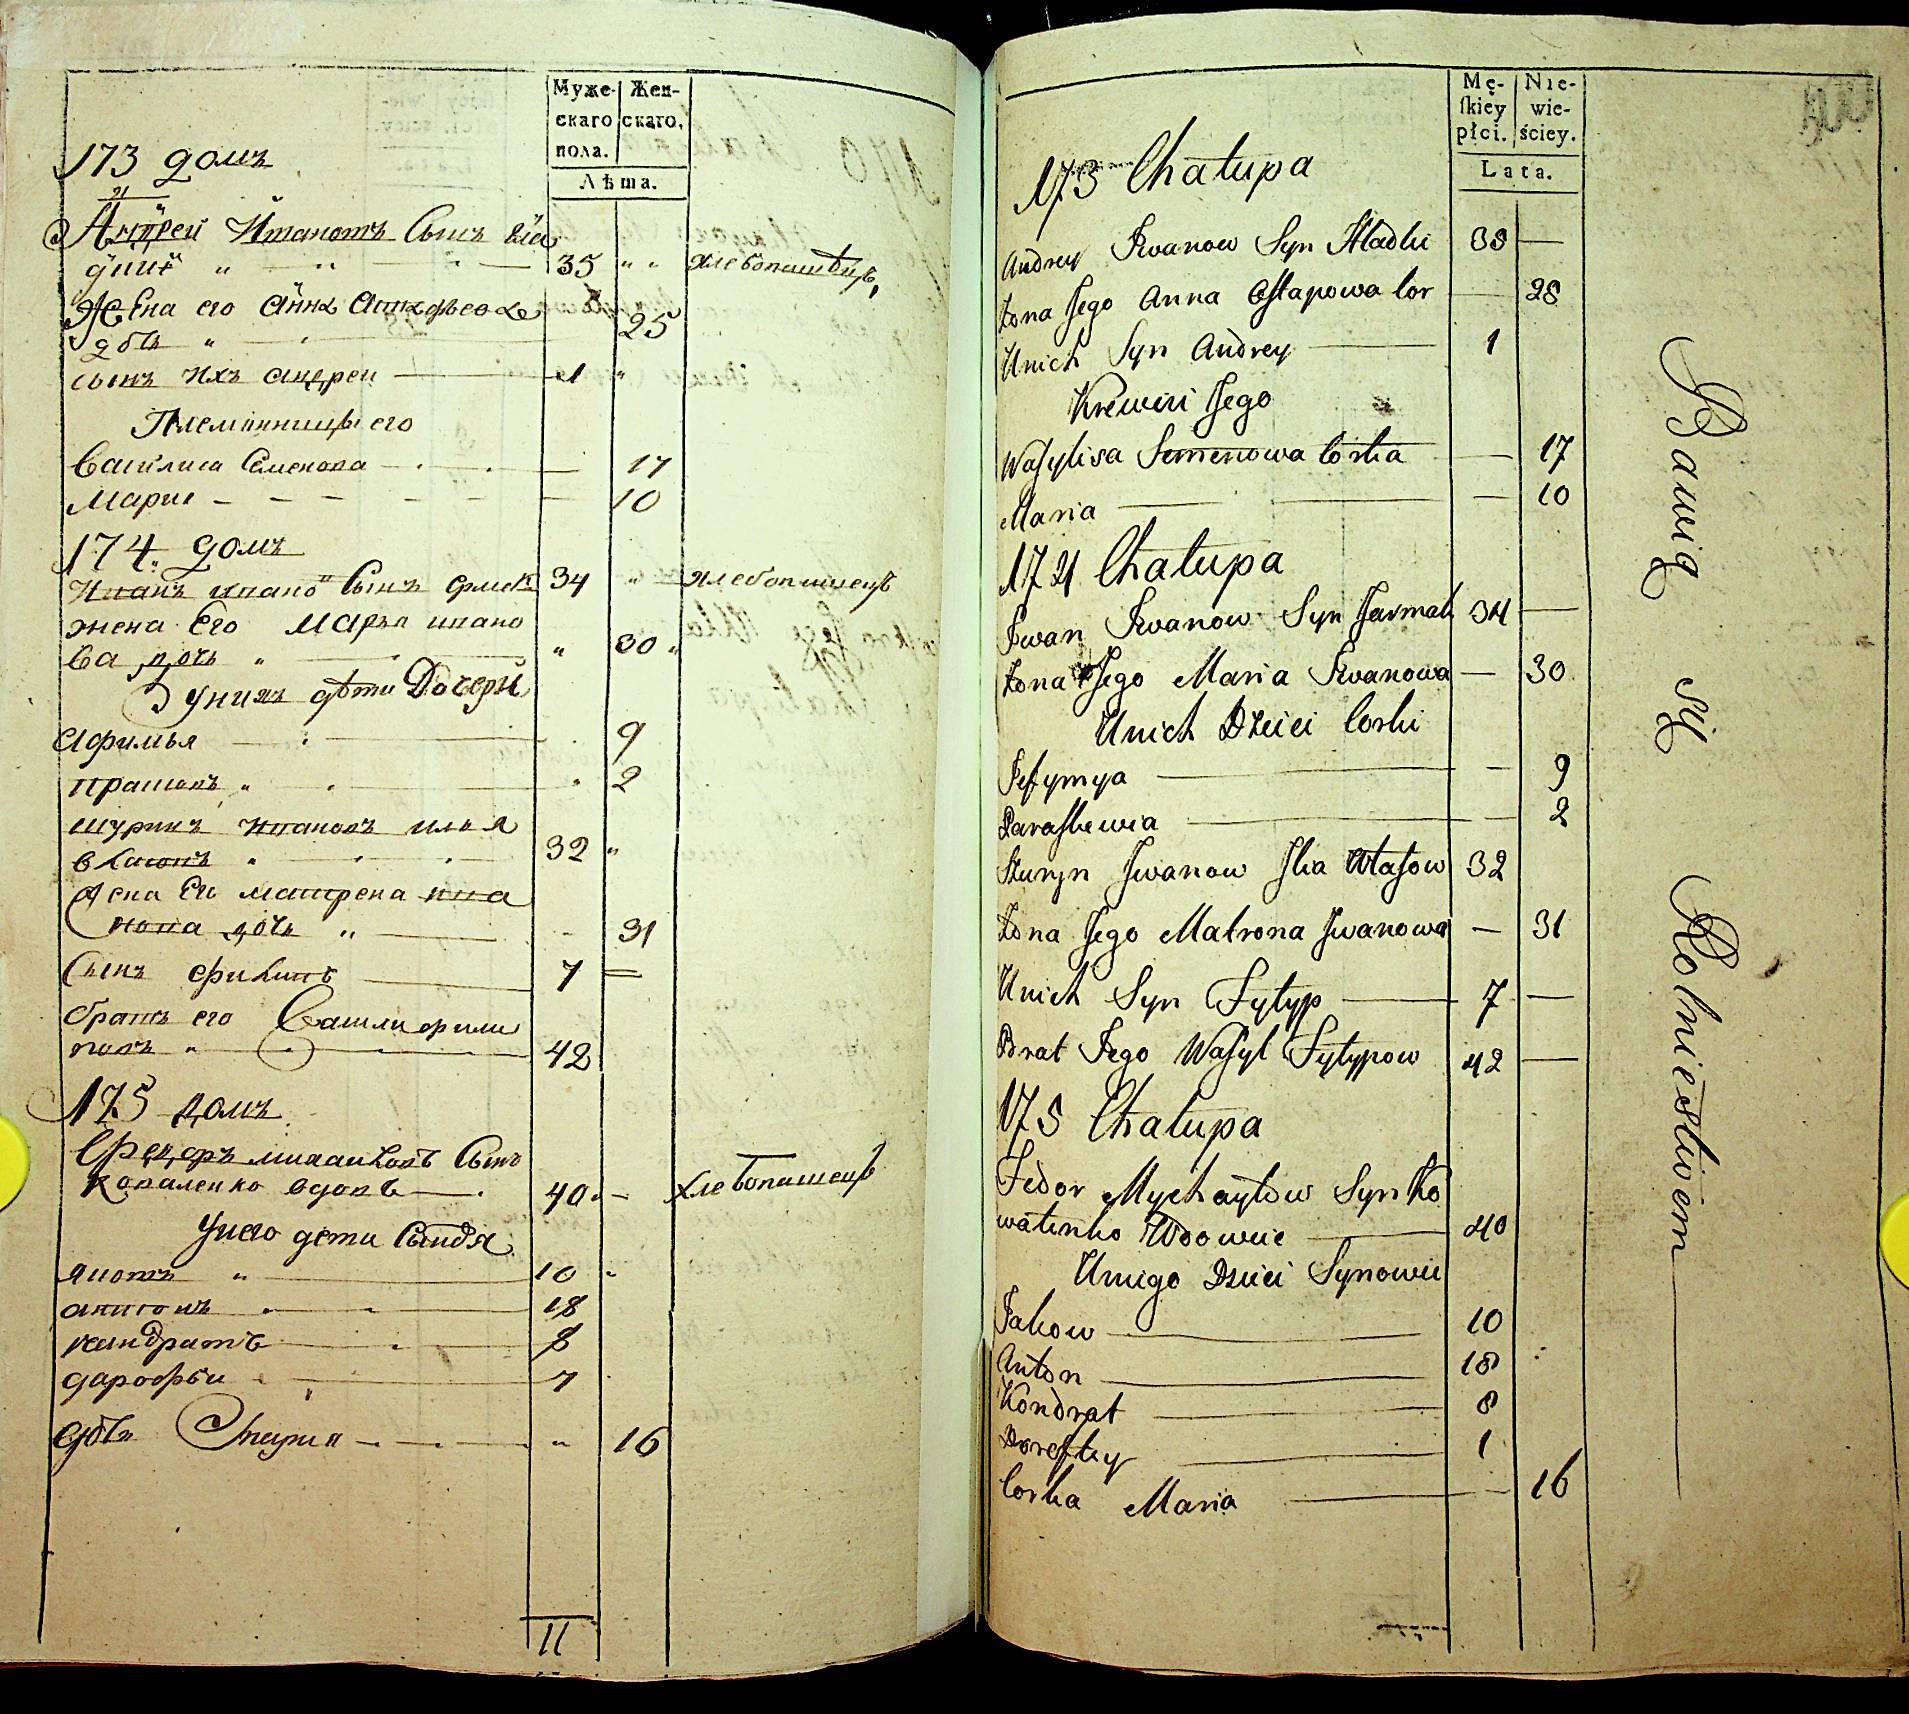 Муже-
скаго
пола.
Жен-
скаго.
Лѣта.
173 домъ
Андрей Ивановъ Сынъ Гла
дкий 35 хлебопашецъ,
Жена его Анна Астафьева
дочь 25
сынъ ихъ андреи 1
Племянницы его
Василиса Семенова 17
Мария 10
174 домъ
Иванъ ивановъ Сынъ ермак 34 хлебопашецъ
жена Его Марья ивано
ва дочь 30
у них дѣти Дочери
Афимья 9
прасков 2
шуринъ Ивановъ илья
власовъ 32
жена Ево матрена ива
нова дочь 31
Сынъ филипъ 7
братъ его Василии фили
повъ 42
175 домъ
Федоръ михаиловъ Сынъ
Коваленко вдовъ 40 хлебопашецъ
у него дети Сыновя
яковъ 10
антонъ 18
кандратъ 8
дарофеи 1
дочь Мария 16
11
Mę-
skiey
płci.
Nie-
wie-
ściey.
Lata.
173 Chałupa
Andrey Iwanow Syn Hladki 35
Żona Jego Anna Ostapowa Cor 28
Unich Syn Andrey 1
Krewni Jego
Wasylisa Semenowa Corka 17
Maria 10
174 Chałupa
Iwan Iwanow Syn Jarmak 34
Żona Jego Maria Iwanowa 30
Unich Dzieci Corki
Jefymya 9
Paraskewia 2
Szuryn Iwanow Ilia Własow 32
Żona Jego Matrona Iwanowa 31
Unich Syn Fyłyp 7
Brat Jego Wasyl Fyłypow 42
175 Chałupa
Fedor Mychayłow Syn Ko
walenko Wdowiec 40
Uniego Dzieci Synowie
Jakow 10
Anton 18
Kondrat 8
Dorofey 1
Corka Maria 16
Bawią się Rolniestwem